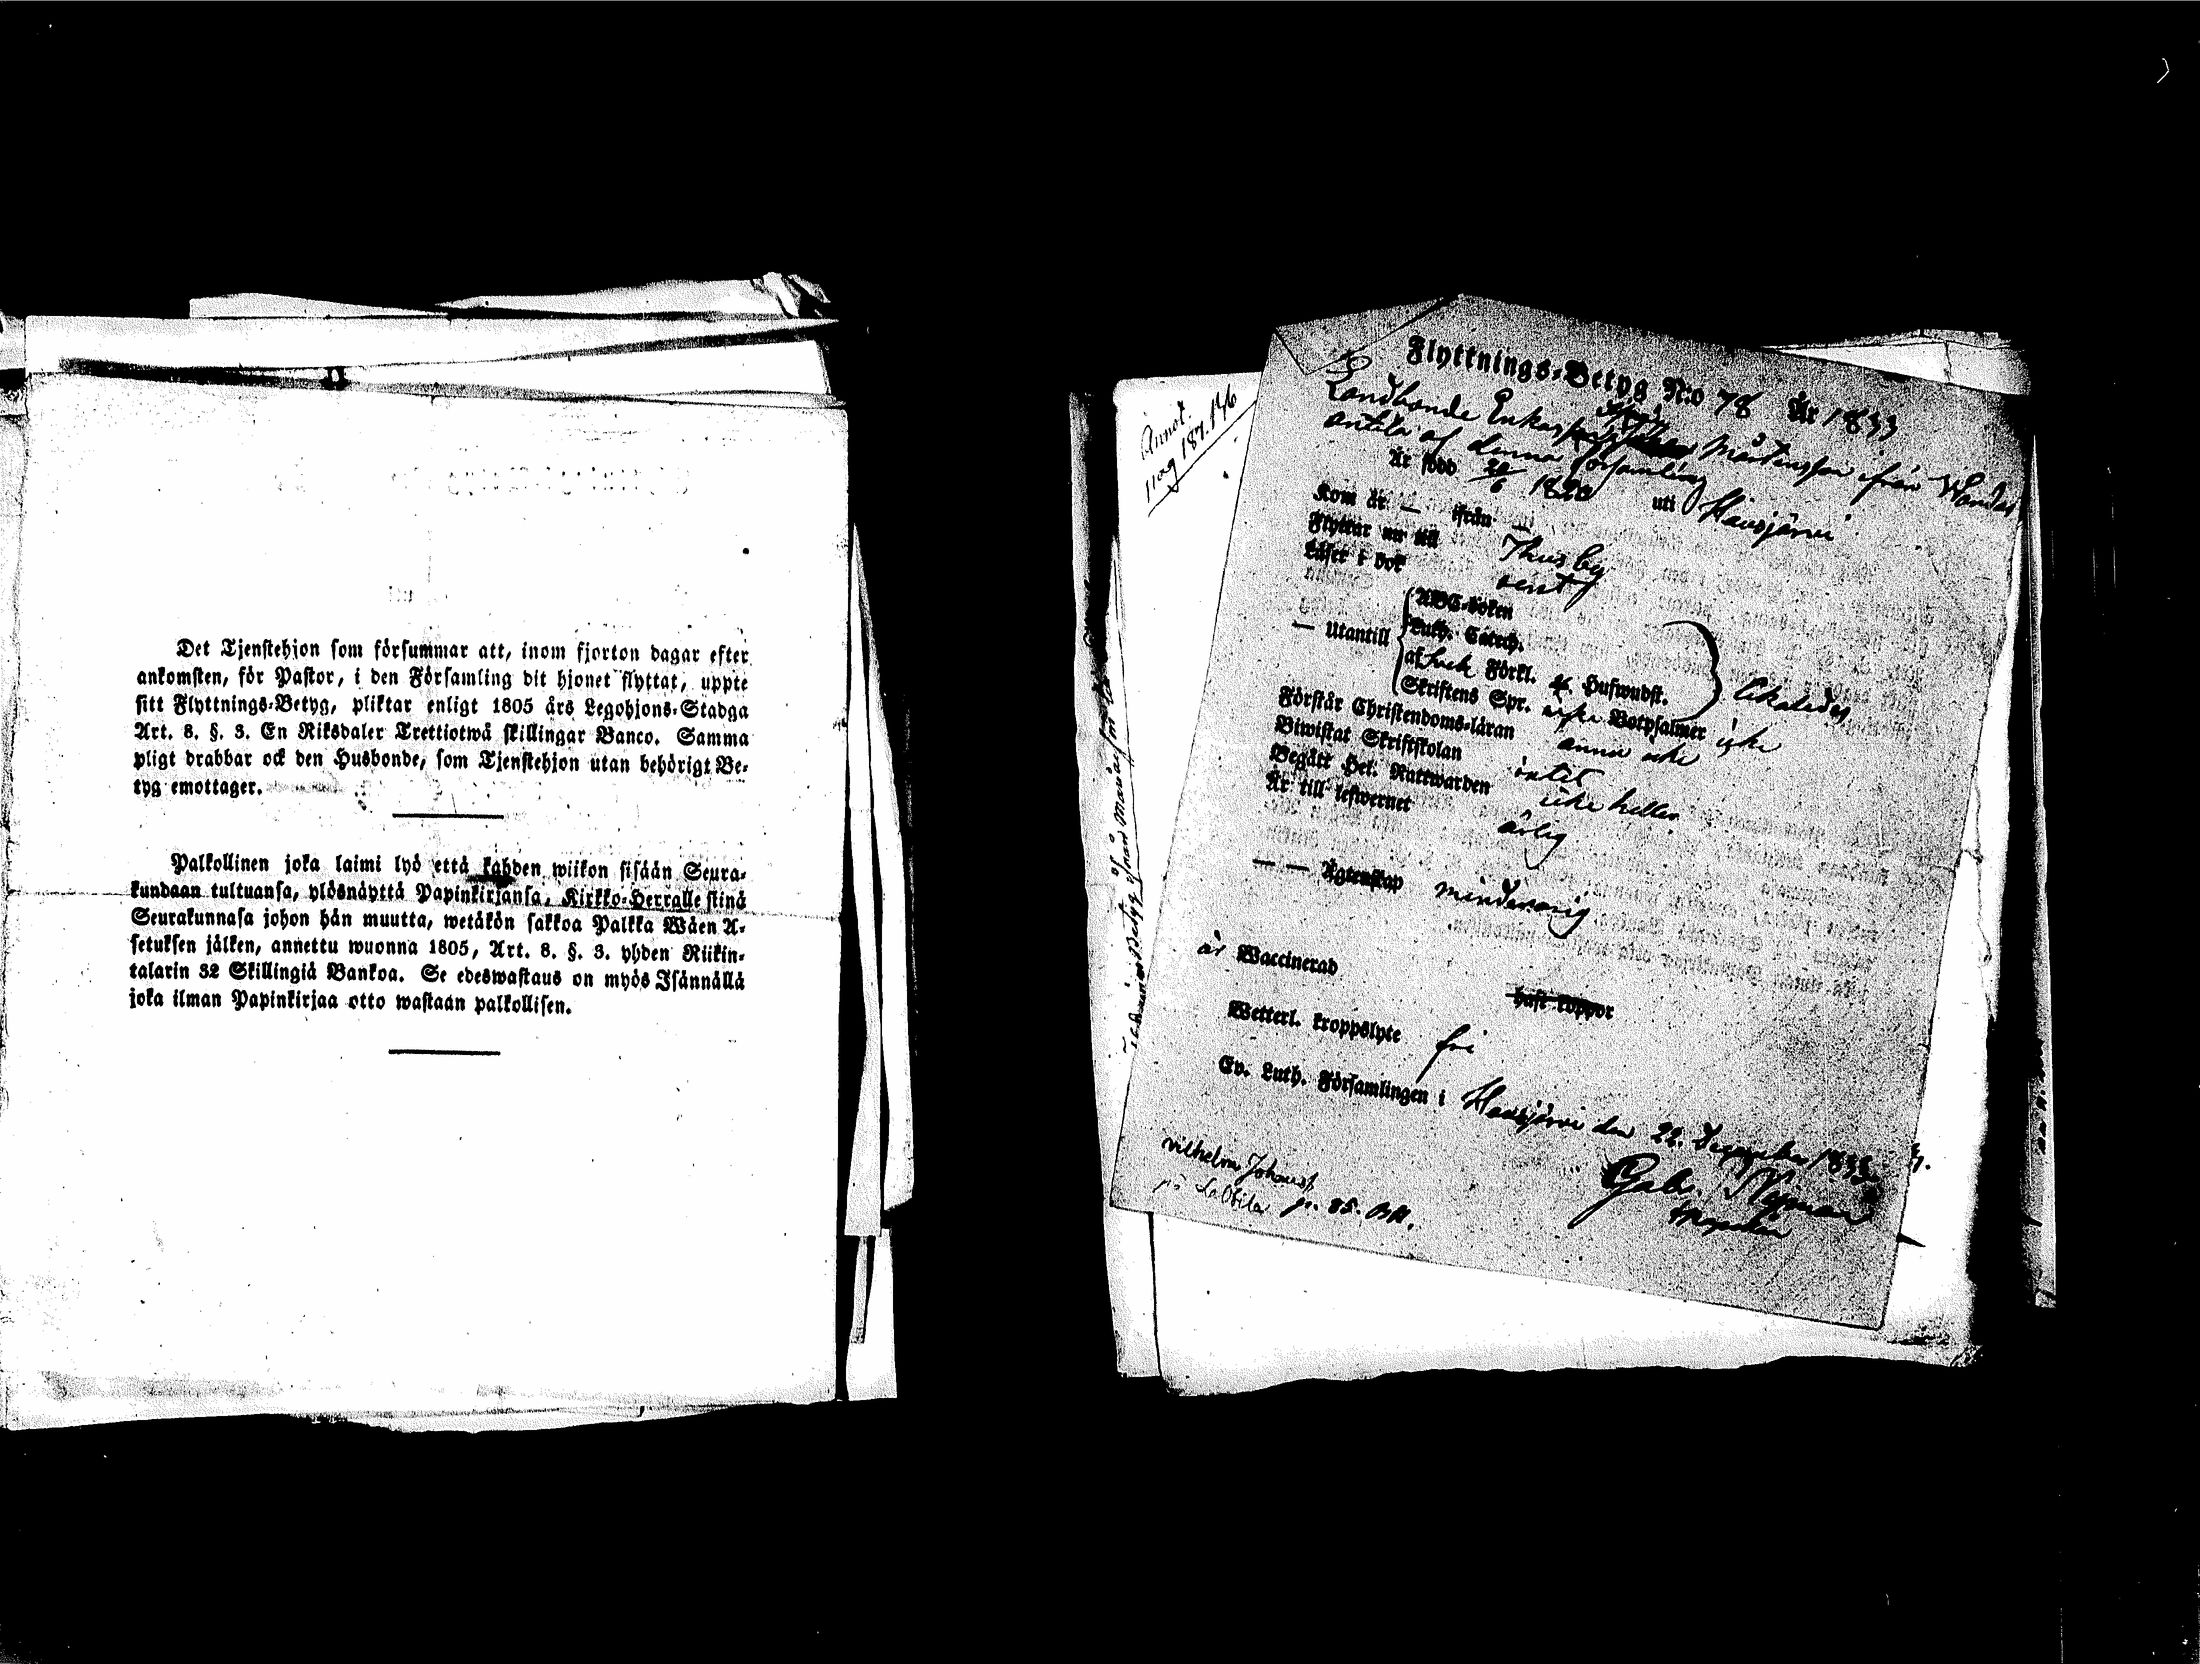 Det Tjenstehjon som försummar att, inom fjorton dagar efter
ankomsten, för Pastor, i den Församling dit hjonet flyttat, uppte
sitt Flyttnings-Betyg, pliktar enligt 1805 års Legohjons-Stadga
Art. 8. §. 3. En Riksdaler Trettiotwå skillingar Banco. Samma
pligt drabbar ock den Husbonde, som Tjenstehjon utan behörigt Be-
tyg emottager.
Palkollinen joka laimi lyö että kahden wiikon sisään Seura-
kundaan tultuansa, ylösnäyttä Papinkirjansa, Kirkko-Herralle stinä
Seurakunnasa johon hän muutta, wetäkön sakkoa Palkka Wäen A-
setuksen jälken, annettu wuonna 1805, Art. 8. §. 3. yhden Riikin-
talarin 32 Skillingiä Bankoa. Se edeswastaus on myös Isännällä
joka ilman Papinkirjaa otto wastaan palkollisen.
Annot.
pag 187. 146
Flyttnings-Betyg N:o 78 År 1833
Landbonde Enkas Mårtensson ifrån
antila af denna församling
Är född 20/6 1820 uti Hausjärvi
Kom år — ifrån —
Flyttar nu till Thusby
Läser i bok
— Utantill
ABC-boken
Luth. Catech.
af Förkl. Hufwudst.
Skriftens Spr. Botpsalmer icke
Förstår Christendoms-läran
Biwistat Skriftskolan
Begått Hel. Nattwarden icke heller
Är till lefwernet ärlig
— — Ägtenskap minderårig
är Vaccinerad
haft koppor
Wetterl. kroppslyte fri
Ev. Luth. Församlingen i Hausjärvi den 22. December 1833
Gabr. Nyman
Vilhelm Johans
på p. 85.